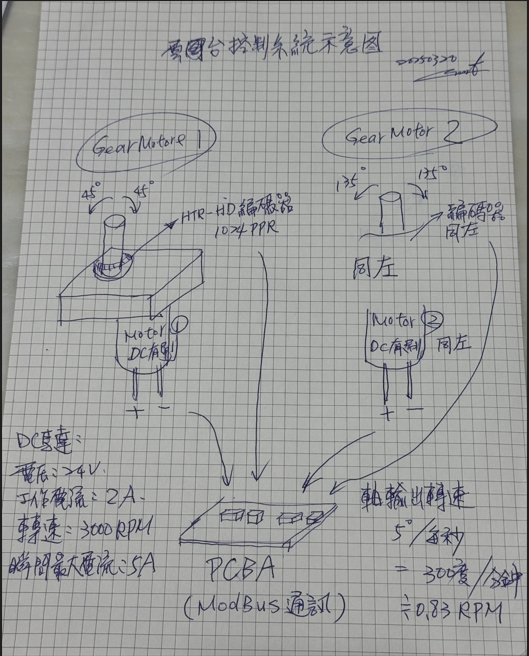 雲台控制系統示意图
20250320
GearMotore 1
GearMotor 2
45° 45°
135° 135°
HTR-HD 編碼器
1024 PPR
編碼器
同左
同左
Motor ①
DC有刷
+ −
Motor ②
DC有刷 同左
+ −
DC馬達:
電压:24V.
工作電流:2A.
轉速:3000RPM
瞬間最大電流:5A
PCBA
(ModBus通訊)
軸輸出轉速
5°/每秒
= 300度/分鐘
≒0.83 RPM